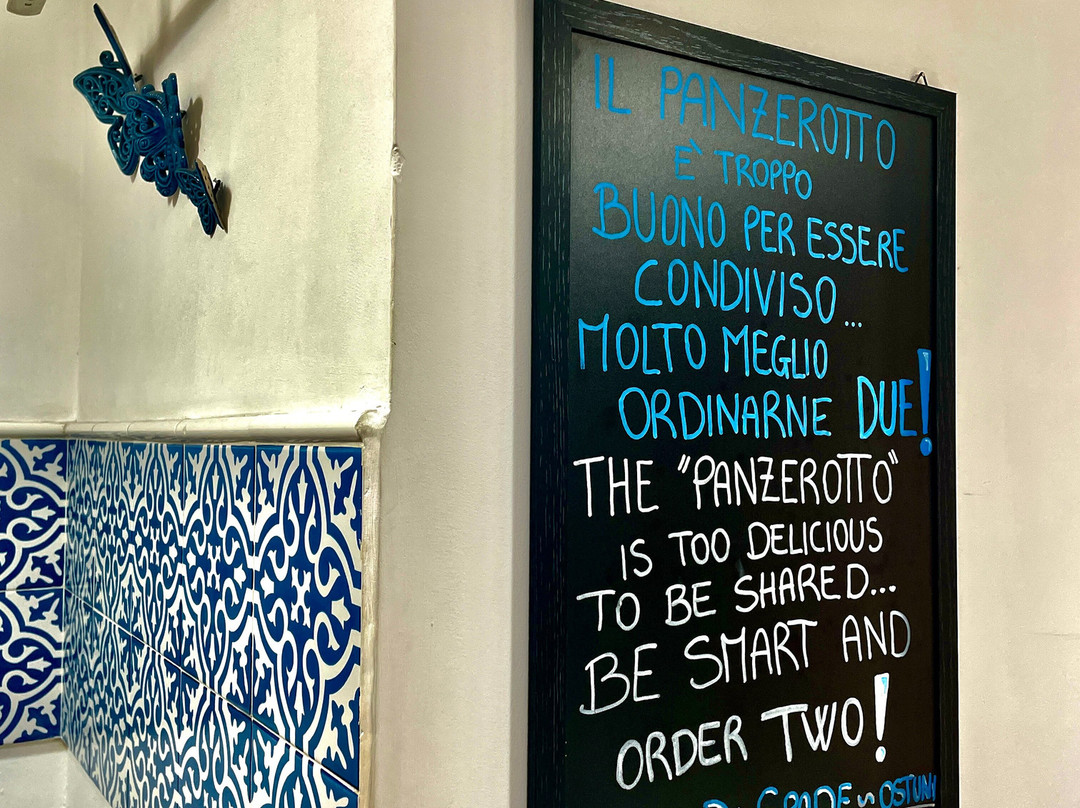 IL PANZEROTTO
È TROPPO
BUONO PER ESSERE
CONDIVISO...
MOLTO MEGLIO
ORDINARNE DUE!
THE "PANZEROTTO"
IS TOO DELICIOUS
TO BE SHARED...
BE SMART AND
ORDER TWO!
OSTUNI